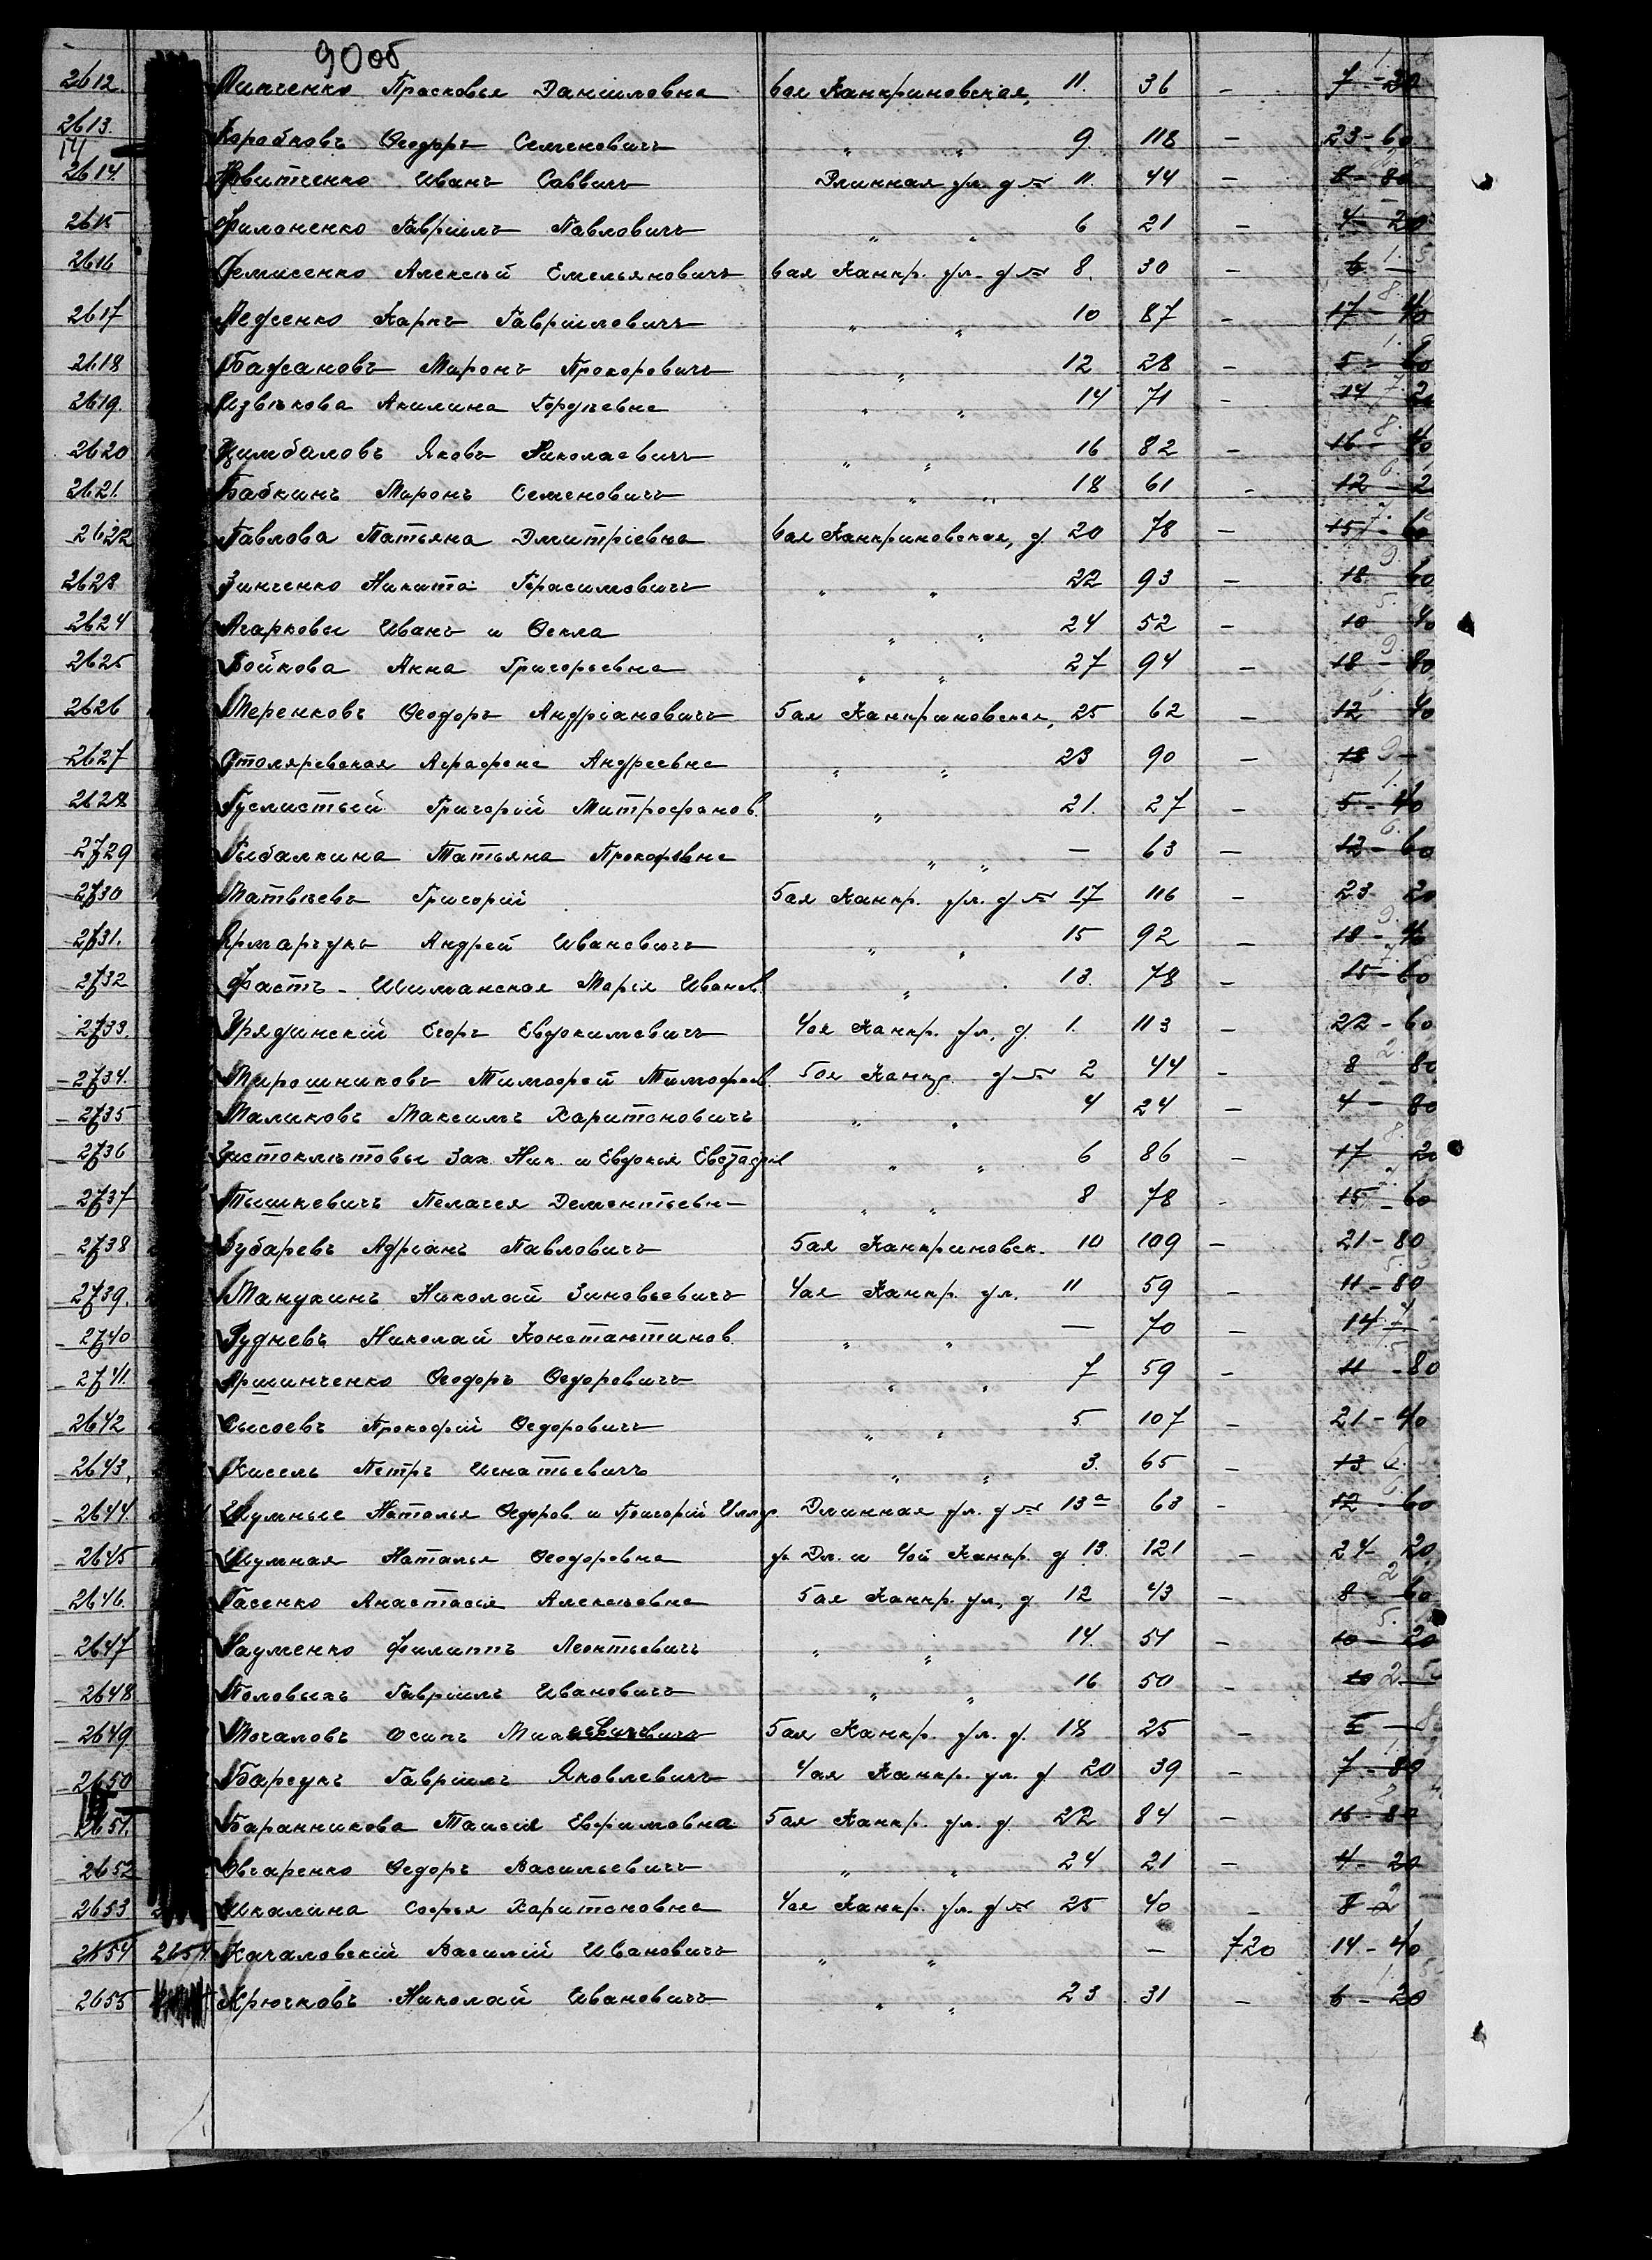 90об
2612. Прасковья Данииловна 6ая Канкриновская, 11. 36 - 7-20
2613. Коробковъ Феодоръ Семеновичъ " " 9. 118 - 23-60
2614. Иванъ Саввичъ Длинная ул. д № 11. 44 - 8-80
2615 Филоненко Гавріилъ Павловичъ " " 6 21 - 4-20
2616 Алексѣй Емельяновичъ 6ая Канкр. ул. д № 8. 30 - 6 -
2617 Карпъ Гавріиловичъ " " 10 87 - 17-40
2618 Бажановъ Миронъ Прокоровичъ " 12 28 - 5-60
2619. Извѣкова Акилина Гордѣевна " " 14 71 - 14 2
2620 Цимбаловъ Яковъ Николаевичъ " " 16 82 - 16-40
2621. Бабкинъ Миронъ Семеновичъ " " 18 61 - 12-2
2622 Павлова Татьяна Дмитріевна 6ая Канкриновская, д. 20 78 - 15-60
2623 Зинченко Никита Герасимовичъ " " 22 93 - 18 60
2624 Агарковы Иванъ и Фекла " " 24 52 - 10 40
2625 Бойкова Анна Григорьевна " " 27 94 - 18-80
2626 Теренковъ Феодоръ Андріановичъ 5ая Канкриновская, 25 62 - 12 40
2627 Столяревская Аграфена Андреевна " " 23 90 - 18 -
2628 Гуслистый Григорій Митрофанов. " 21. 27 - 5-40
2729 Рыбалкина Татьяна Прокофвна " " - 63 - 12-60
2730 Матвѣевъ Григорій 5ая Канкр. ул. д № 17 116 - 23-20
2731. Ярмарчукъ Андрей Ивановичъ " " 15 92 - 18-40
2732 Фастъ-Шиманская Марія Иванов. " 13. 78 - 15-60
2733. Грядинскій Егоръ Евдокимовичъ 4ая Канкр. ул, д. 1. 113 - 22-60
2734. Мирошниковъ Тимофей Тимофеев. 5ая Канкр. д № 2 44 - 8 80
2735 Маликовъ Максимъ Харитоновичъ " " 4 24 - 4-80
2736 Зах. Ник. и Евдокія " " 6 86 - 17 20
2737 Тышкевичъ Пелагея Дементьевн " " 8 78 - 15-60
2738 Зубаревъ Адріанъ Павловичъ 5ая Канкриновск. 10 109 - 21-80
2739. Николай Зиновьевичъ 4ая Канкр. ул. 11 59 - 11-80
2740 Рудневъ Николай Константинов. " " - 70 - 14
2741. Аршинченко Феодоръ Федоровичъ " " 7 59 - 11-80
2642 Сысоевъ Прокофій Федоровичъ " " 5. 107 - 21-40
2643. Кисель Петръ Игнатьевичъ " " 3. 65 - 13
2644. Шумные Наталья Федоров. и Григорій Длинная ул. д № 13а 63 - 12-60
2645 Шумная Наталья Феодоровна уг. Дл. и 4ой Канкр. д 13. 121 - 24-20
2646. Гасенко Анастасія Алексѣевна 5ая Канкр. ул, д 12 43 - 8-60
2647 Науменко Филиппъ Леонтьевичъ " " 14. 51 - 10-20
2648 Гавріилъ Ивановичъ " " 16 50 - 10
2649. Мочаловъ Осипъ 5ая Канкр. ул. д. 18 25 - 5 -
2650 Барсукъ Гавріилъ Яковлевичъ 4ая Канкр. ул. д 20 39 - 7-80
2651. Баранникова Таисія Ефимовна 5ая Канкр. ул. д. 22 84 - 16-80
2652 Овчаренко Федоръ Васильевичъ " " 24 21 - 4-20
2653 Шкалина Софья Харитоновна 4ая Канкр. ул. д № 25 40 - 8
2654 2654. Качаловскій Василій Ивановичъ " " - 720 14-40
2655 Крючковъ Николай Ивановичъ " " 23 31 - 6-20